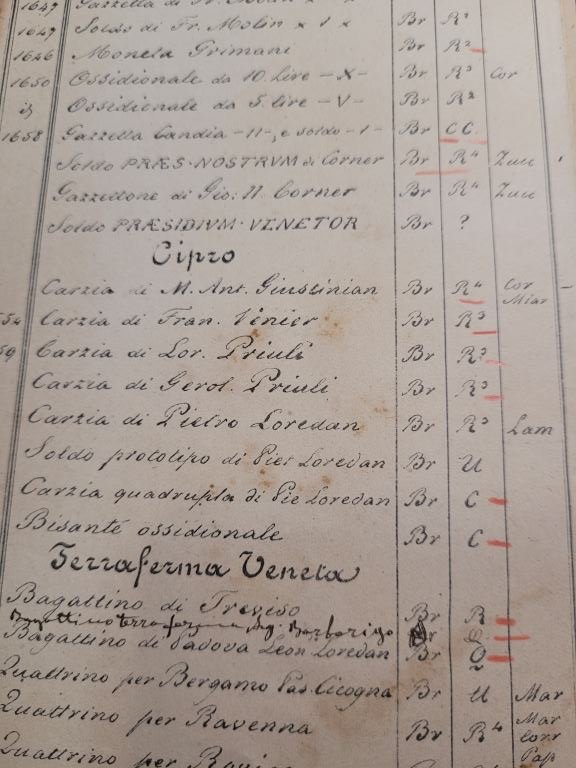 1647 Gazzetta di Fr.
1647 Soldo di Fr. Molin x 1 x Br R²
1646 Moneta Grimani Br R²
1650 Ossidionale da 10 lire -X- Br R³ Cor
Ossidionale da 5 lire -V- Br R²
1658 Gazzetta Candia -II-, e soldo -I- Br C C.
Soldo PRÆS·NOSTRVM di Corner Br R⁴ Zucc
Gazzettone di Gio: II. Corner Br R⁴ Zucc
Soldo PRÆSIDIVM·VENETOR Br ?
Cipro
Carzia di M. Ant. Giustinian Br R⁴ Cor Miar
54 Carzia di Fran. Venier Br R³
59 Carzia di Lor. Priuli Br R³
Carzia di Gerol. Priuli Br R³
Carzia di Pietro Loredan Br R³ Lam
Soldo prototipo di Piet Loredan Br U
Carzia quadrupla di Pie Loredan Br C
Bisante ossidionale Br C
Terraferma Veneta
Bagattino di Treviso Br R
Bagattino terraferma Ag. Barbarigo Br
Bagattino di Padova Leon Loredan Br
Quattrino per Bergamo Pas. Cicogna Br U Mar
Quattrino per Ravenna Br R⁴ Mar Corr
Quattrino per Pap